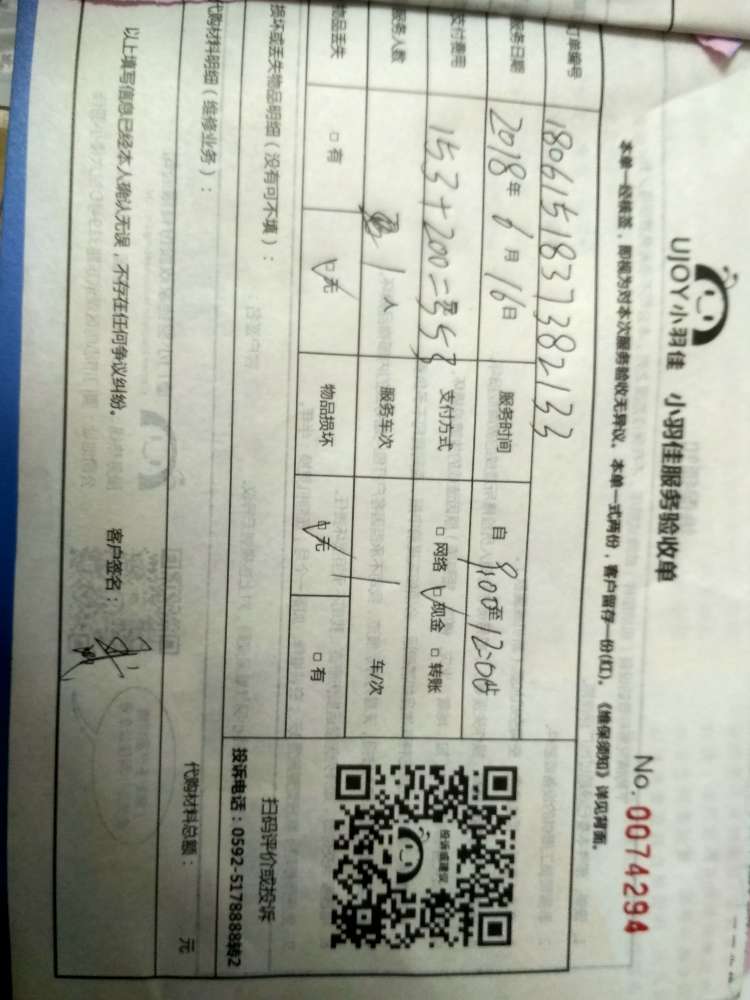 UJOY小羽佳 小羽佳服务验收单
No. 0074294
本单一经核签，即视为对本次服务验收无异议。本单一式两份，客户留存一份(红)。《维保须知》详见背面。
订单编号 1806151837382133
服务日期 2018年6月16日 服务时间 自 9:00至12:00止
支付费用 153+200=353 支付方式 □网络 □√现金 □转账
服务人数 1人 服务车次 1 车/次
物品丢失 □有 □√无 物品损坏 □√无 □有
损坏或丢失物品明细（没有可不填）：
投诉或建议
扫码评价或投诉
投诉电话：0592-5178888转2
代购材料明细（维修业务）：
代购材料总额： 元
以上填写信息已经本人确认无误，不存在任何争议纠纷。 客户签名：